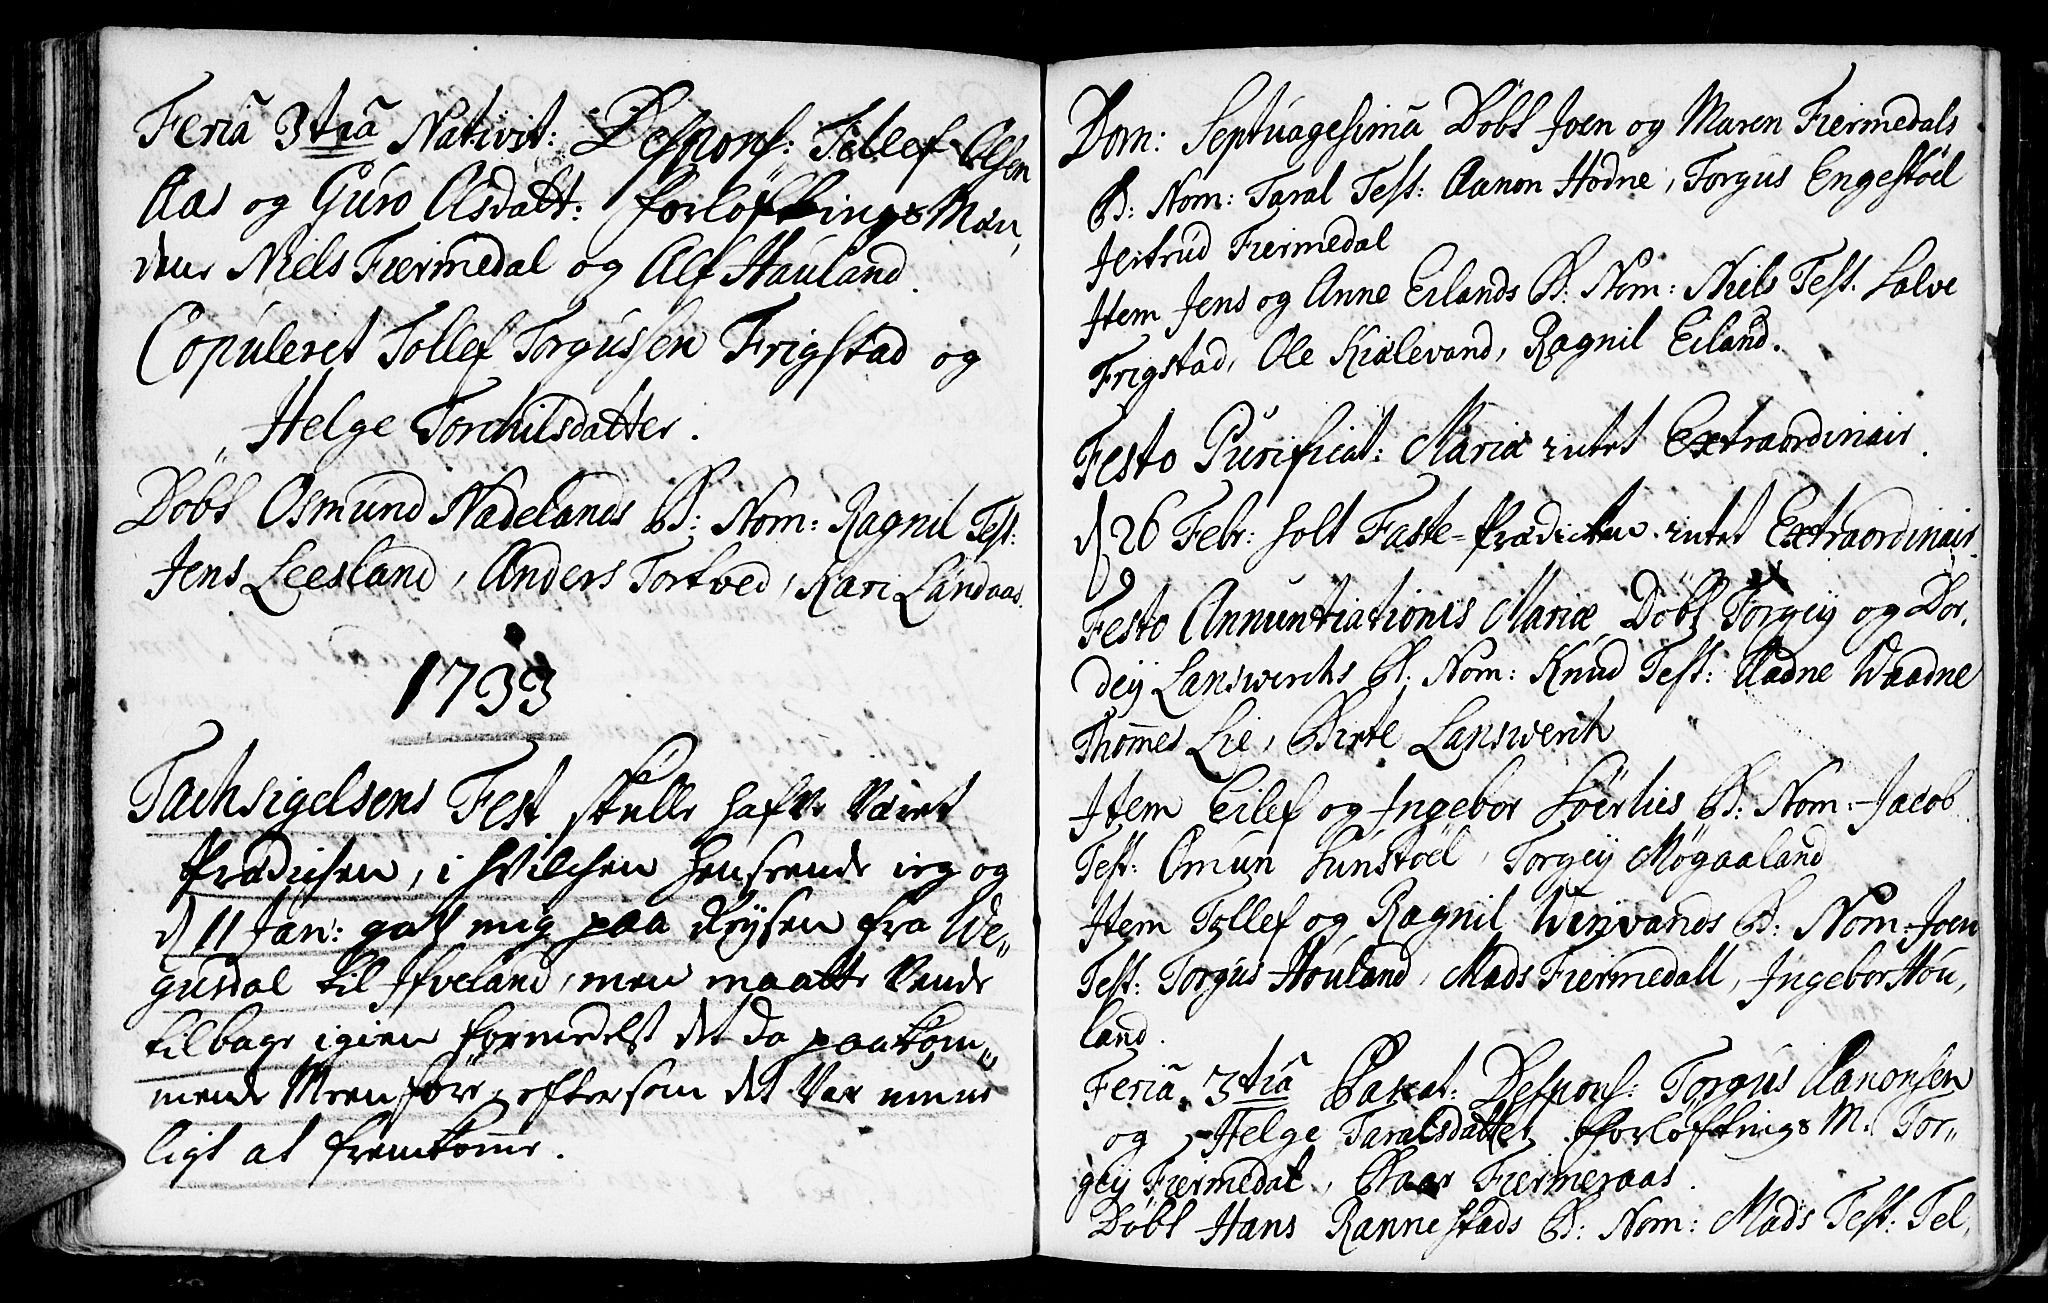 Feriâ 3tiâ Nativit: Despons: Tellef Olsen
Aas og Guro Olsdatt: forlöftnings Mæn,
dene Niels Fiermedal og Alf Hauland.
Copuleret Tollef Torgussen Frigstad og
Helge Torchilsdatter.
Döbt Osmund Nadelands B: Nom: Ragnil Test:
Jens Leesland, Anders Tortved, Kari Landaas.
1733
Tachsigelsens Fest skulle hafve Været
Prædichen, i hvilchen henseende ieg og
d 11 Jan: gaf mig paa Reysen fra We„
gusdal til Ifveland, men maatte Vende
tilbage igien formedelst det da paakom„
mende Meenföre, eftersom det Var umue
ligt at fremkomme.
Dom: Septuagesimâ Döbt Joen og Maren Fiermedals
B: Nom: Taral Test: Aanon Hodne, Torgus Engestöel
Jertrud Fiermedal
Item Jens og Anne Eilands B: Nom: Niels Test. Salve
Frigstad, Ole Kialevand, Ragnil Eiland.
Festo Purificat: Mariæ intet Extraordinair.
d 26 Febr: holt Faste-Prædicken intet Extraordinair.
Festo Annuntiationis Mariæ Döbt Torgey og Dor,
dey Lanswerchs B: Nom: Knud Test: Aadne Waadne
Thomes Lie, Birte Lanswerch
Item Eilef og Ingebor Löerlies B: Nom: Jacob
Test: Omun Sunstöel, Torgey Mögaaland
Item Tollef og Ragnil Wejvands B: Nom: Joen
Test: Torgus Houland, Mads Fiermedall, Ingebor Hou,
land.
Feriâ 3tiâ Pascat: Despons: Torgus Aanonsen
og Helge Taralsdatter forlöftnings M. Tor„
gey Fiermedal, Baar Fiermeraas.
Döbt Hans Rannestads B: Nom: Mads Test: Tel,